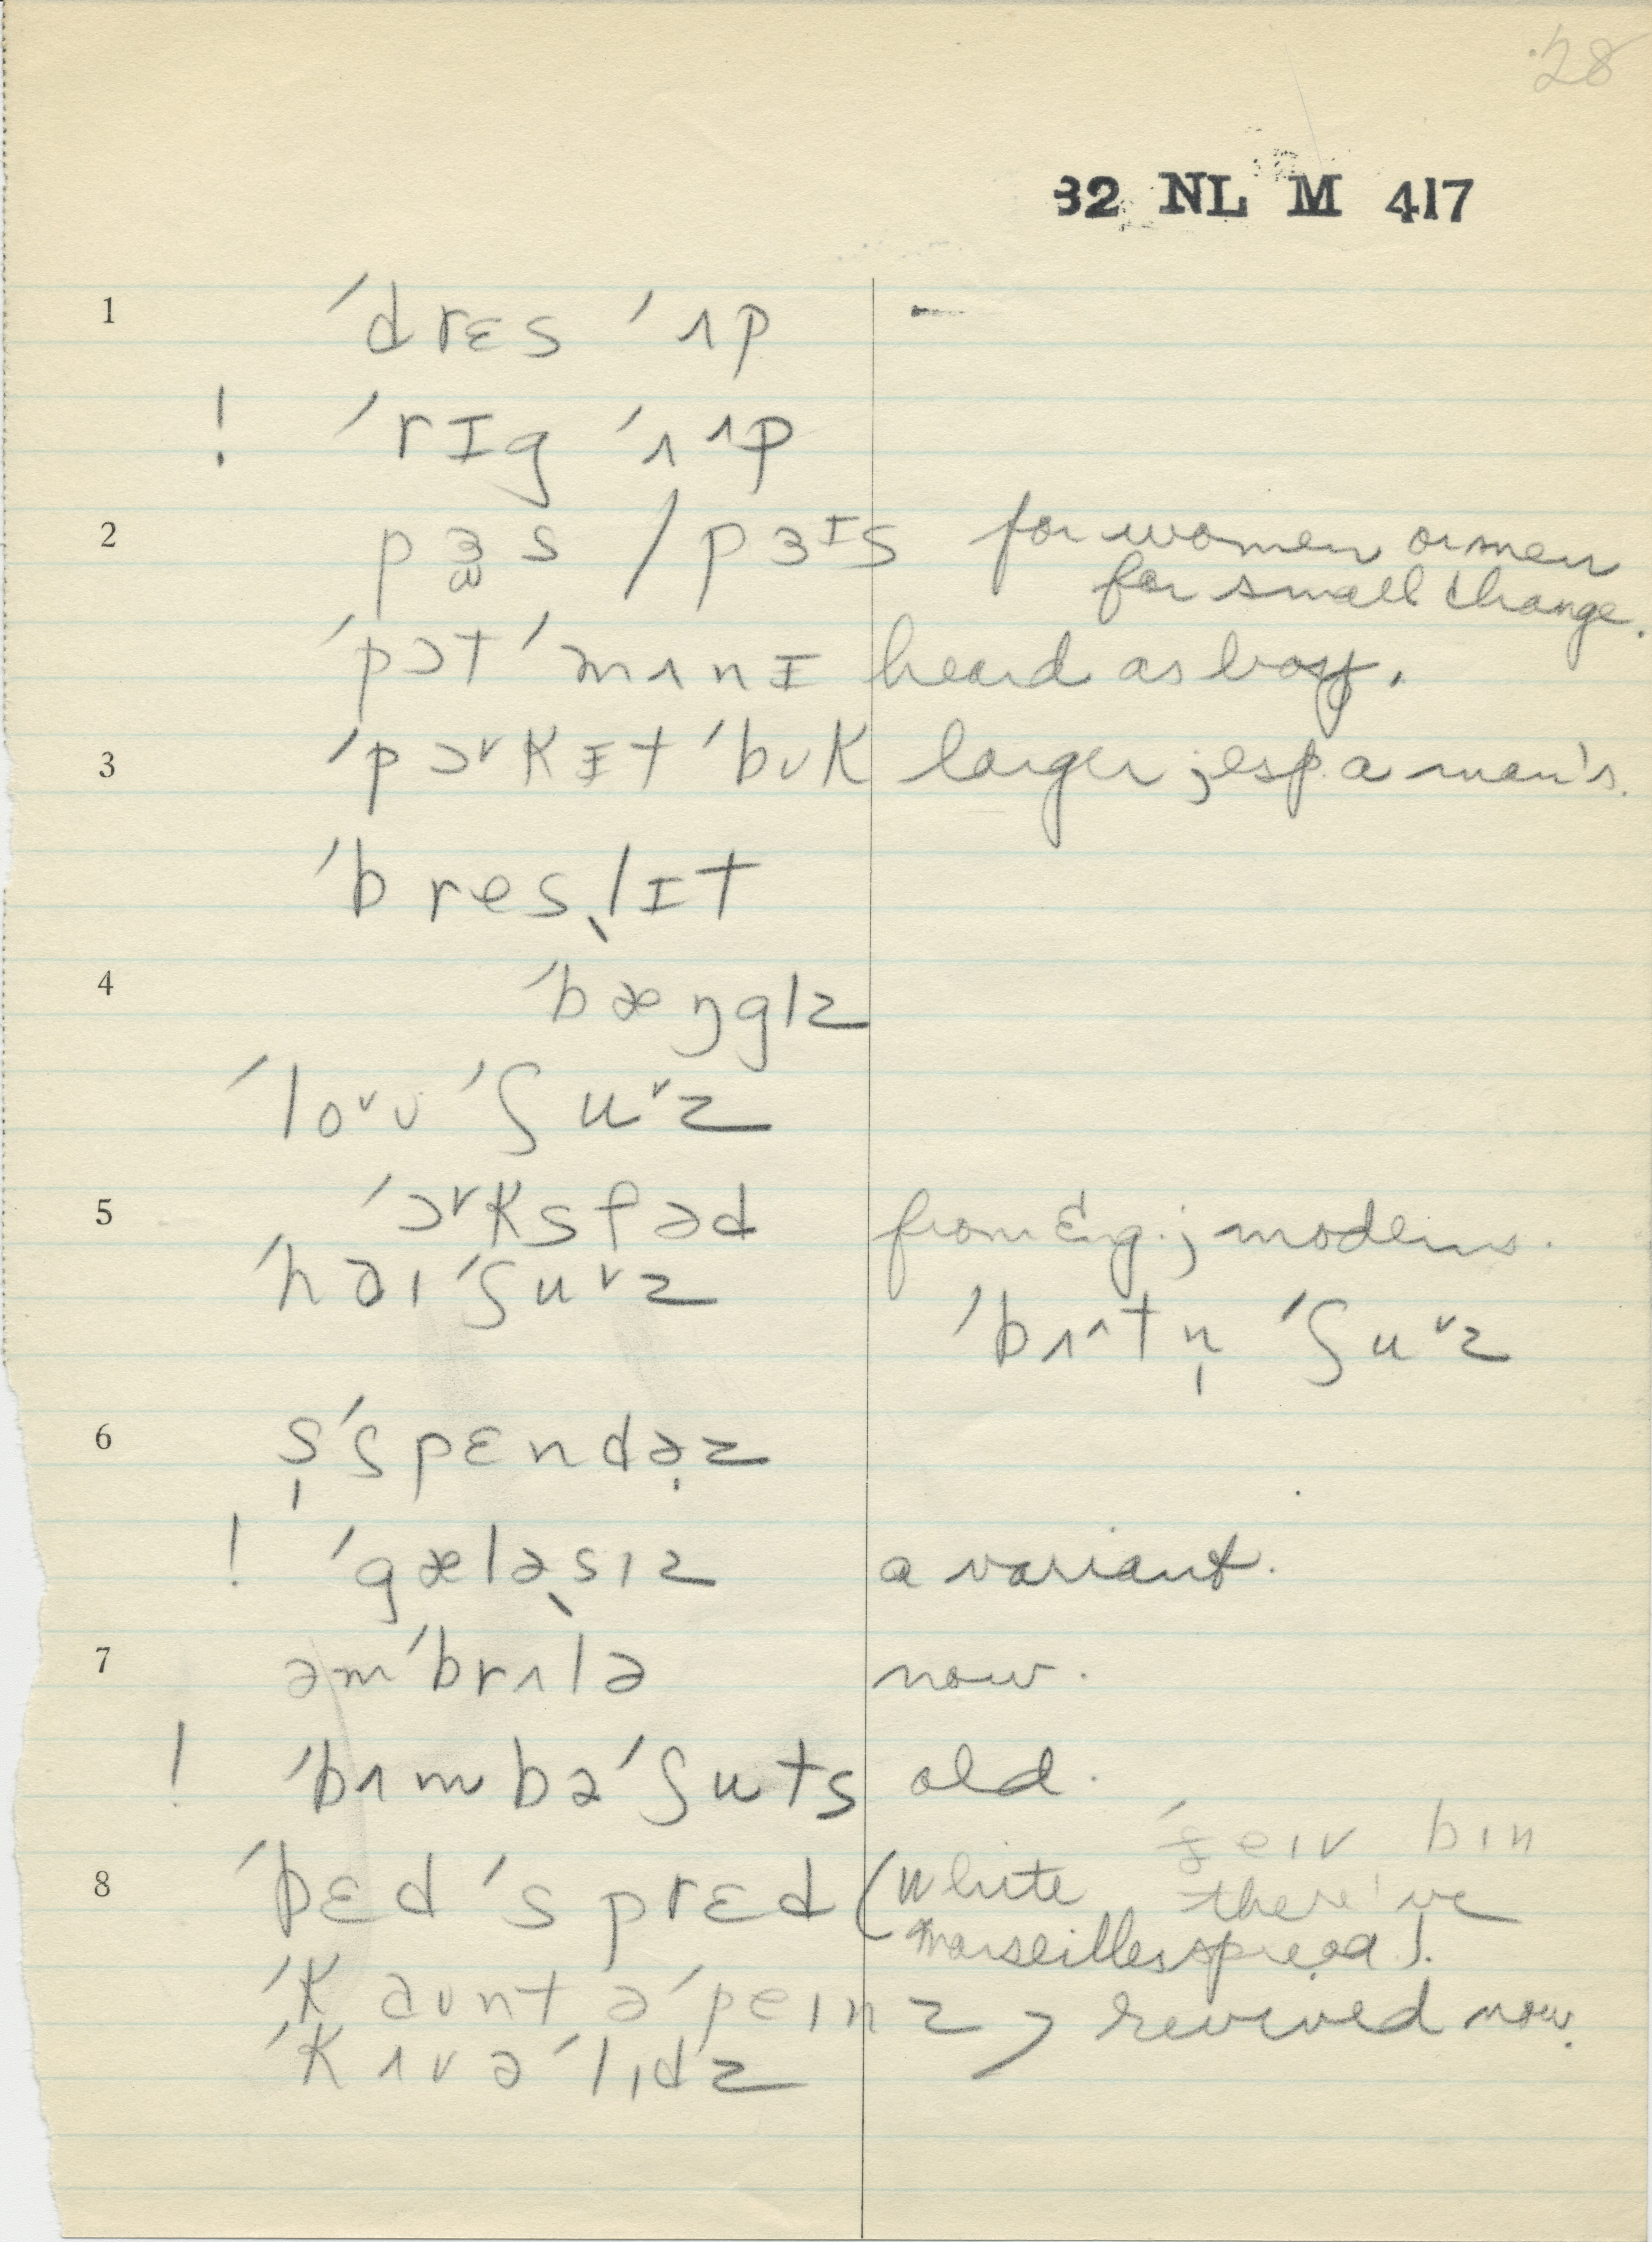 28
32 NL M 417
1 ˈdrɛs ˈʌp –
! ˈrɪg ˈʌ^ʌp
2 pɜ̫s / pɜᶦs for women or men
for small change.
ˈpɔt ˈmʌnɪ heard as boy.
3 ˈpɔ˅kɪt ˈbʊk larger; esp. a man's.
ˈbresˌlɪt
4 ˈbæŋglz
ˈlo˅ʊ ˈʃu˅z
5 ˈɔ˅ksfəd from Eng.; modern.
ˈhaɪ ˈʃu˅z
ˈbʌ^tn̩ ˈʃu˅z
6 s̩ˈspɛndə̣z
! ˈgæləˌsɪz a variant.
7 əmˈbrʌlə now.
! ˈbʌmbəˈʃuts old.
ˈʒeɪv bɪn
8 ˈbɛd ˈsprɛd (white there've
Marseilles spread).
ˈkaʊntəˈpeɪnz, revived now.
ˈkʌvəˈlɪdz